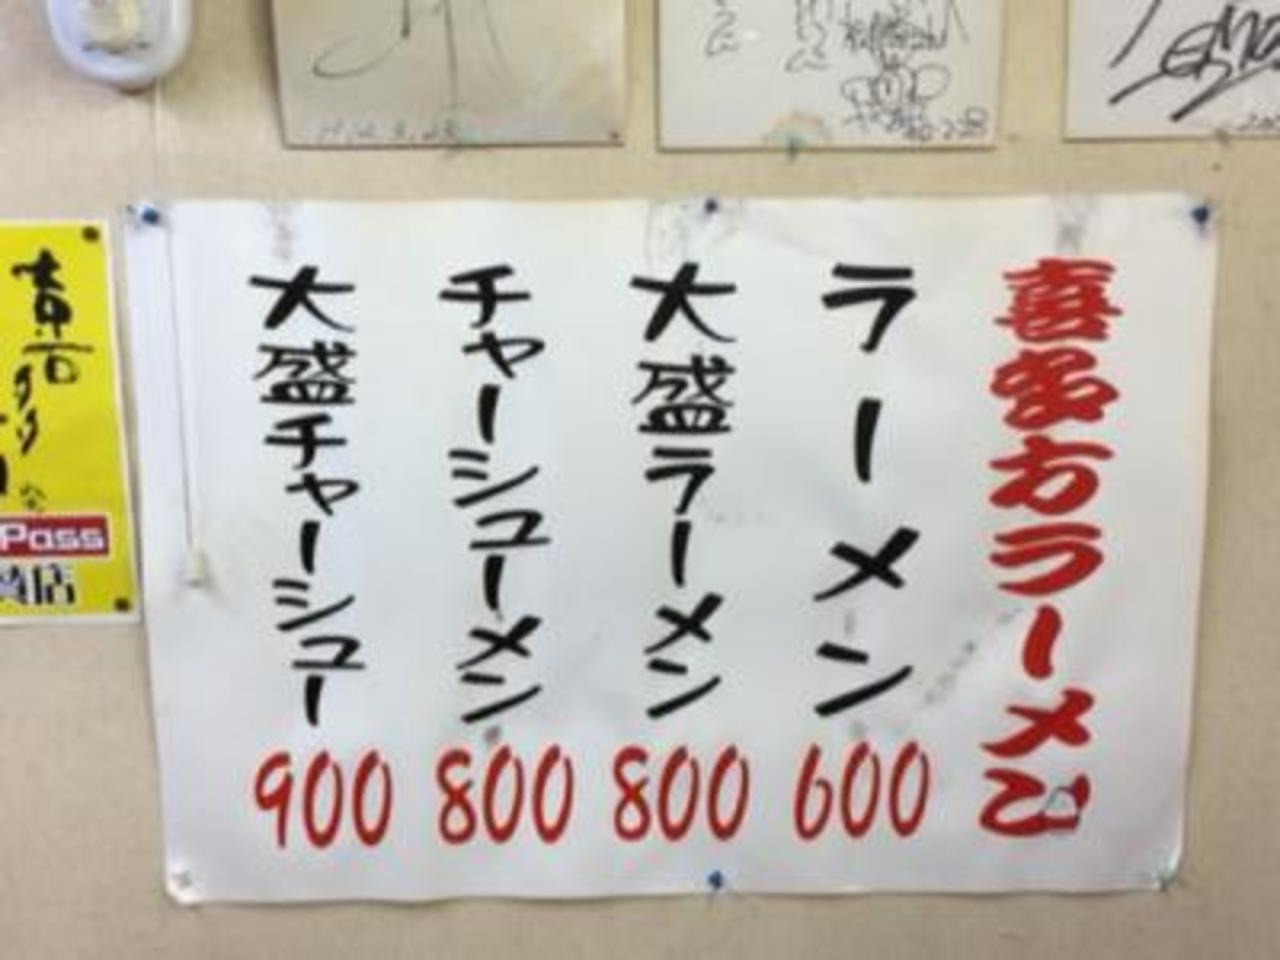 喜多方ラーメン
ラーメン 600
大盛ラーメン 800
チャーシューメン 800
大盛チャーシュー 900
Pass